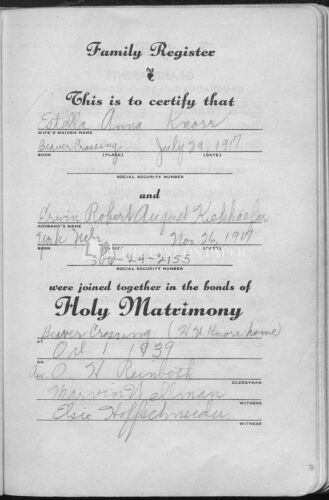 Family Register
This is to certify that
Estella Anna Knorr
WIFE'S MAIDEN NAME
Beaver Crossing July 29, 1917
BORN (PLACE) (DATE)
SOCIAL SECURITY NUMBER
and
Erwin Robert August Kiekhaefer
HUSBAND'S NAME
York Nebr Nov. 26, 1917
BORN (DATE)
24-2155
SOCIAL SECURITY NUMBER
were joined together in the bonds of
Holy Matrimony
Beaver Crossing (H H Knorr home)
AT
Oct 1 1939
ON
O H Reinboth
CLERGYMAN
Marvin Wellman
WITNESS
Elsie Hoffschneider
WITNESS